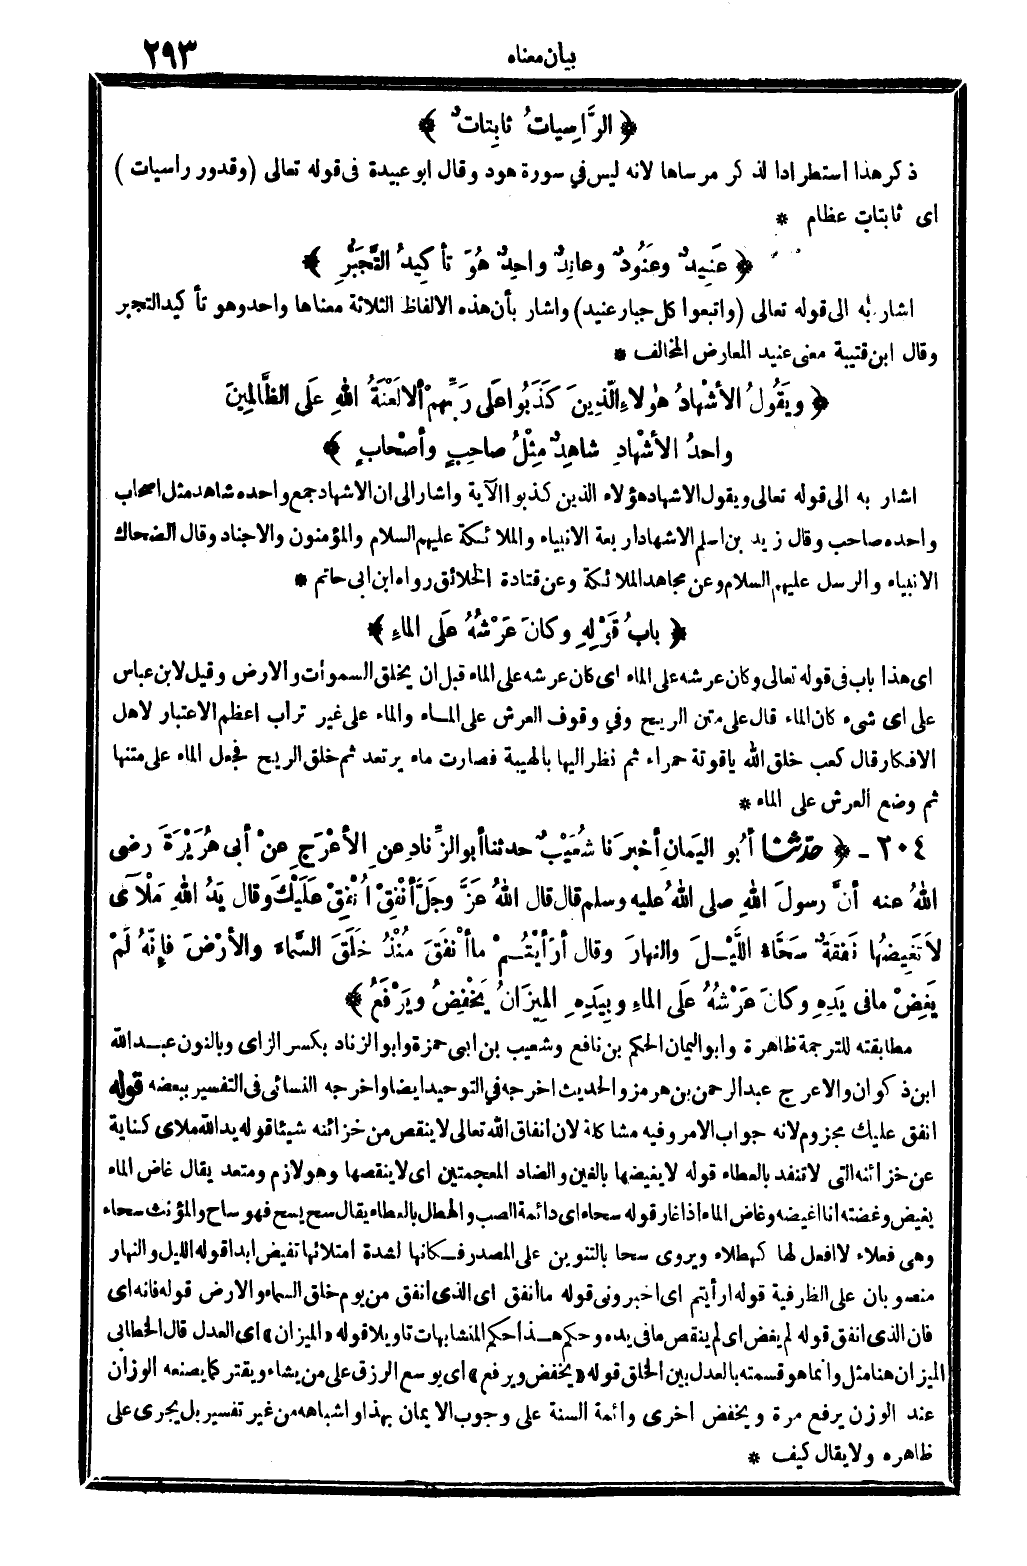 بيان معناه ٢٩٣
﴿ الرَّاسِياتُ ثابِتاتٌ ﴾
ذكر هذا استطرادا لذكر مرساها لانه ليس في سورة هود وقال ابو عبيدة في قوله تعالى (وقدور راسيات)
اى ثابتات عظام *
﴿ عَنِيدٌ وعَنُودٌ وعانِدٌ واحِدٌ هُوَ تأكِيدُ التَّجَبُّرِ ﴾
اشار به الى قوله تعالى (واتبعوا كل جبار عنيد) واشار بأن هذه الالفاظ الثلاثة معناها واحد وهو تأكيد التجبر
وقال ابن قتيبة معنى عنيد المعارض المخالف *
﴿ ويَقُولُ الأشْهادُ هٰولاءِ الَّذِينَ كَذَبُوا عَلَى رَبِّهِمْ ألا لَعْنَةُ اللهِ عَلَى الظَّالِمِينَ
واحدُ الأشْهادِ شاهِدٌ مِثْلُ صاحِبٍ وأصْحابٍ ﴾
اشار به الى قوله تعالى ويقول الاشهاد هؤلاء الذين كذبوا الآية واشار الى ان الاشهاد جمع واحده شاهد مثل اصحاب
واحده صاحب وقال زيد بن اسلم الاشهاد اربعة الانبياء والملائكة عليهم السلام والمؤمنون والاجناد وقال الضحاك
الانبياء والرسل عليهم السلام وعن مجاهد الملائكة وعن قتادة الخلائق رواه ابن ابى حاتم *
﴿ بابُ قَوْلِهِ وكانَ عَرْشُهُ عَلَى الماءِ ﴾
اى هذا باب فى قوله تعالى وكان عرشه على الماء اى كان عرشه على الماء قبل ان يخلق السموات والارض وقيل لابن عباس
على اى شىء كان الماء قال على متن الريح وفي وقوف العرش على المــاء والماء على غير تراب اعظم الاعتبار لاهل
الافكار قال كعب خلق الله ياقوتة حمراء ثم نظر اليها بالهيبة فصارت ماء يرتعد ثم خلق الريح فجعل الماء على متنها
ثم وضع العرش على الماء *
٢٠٤ - ﴿ حدثنا أبُو اليَمانِ أخبرَنا شُعَيْبٌ حدثنا أبو الزِّنادِ عنِ الأعْرَجِ عنْ أبى هُرَيْرَةَ رضى
اللهُ عنه أنَّ رسولَ اللهِ صلى اللهُ عليه وسلم قال قال اللهُ عَزَّ وجَلَّ أنْفِقْ أُنْفِقْ عَلَيْكَ وقال يَدُ اللهِ مَلْآى
لاَ تَغِيضُها نَفَقَةٌ سَحَّاءَ اللَّيْـلَ والنهارَ وقال أرَأيْتُـمْ ما أنْفَقَ مُنْذُ خَلَقَ السَّماءَ والأرْضَ فإنَّهُ لَمْ
يَغِضْ ما فى يَدِهِ وكانَ عَرْشُهُ عَلَى الماءِ وبِيَدِهِ المِيزَانُ يَخْفِضُ ويَرْفَعُ ﴾
مطابقته للترجمة ظاهرة وابو اليمان الحكم بن نافع وشعيب بن ابى حمزة وابو الزناد بكسر الزاى وبالنون عبـد الله
ابن ذكوان والاعرج عبد الرحمن بن هرمز والحديث اخرجه في التوحيد ايضا واخرجه النسائى فى التفسير ببعضه قوله
انفق عليك مجزوم لانه جواب الامر وفيه مشاكلة لان انفاق الله تعالى لا ينقص من خزائنه شيئا قوله يد الله ملاى كناية
عن خزائنه التى لا تنفد بالعطاء قوله لا يغيضها بالغين والضاد المعجمتين اى لا ينقصها وهو لازم ومتعد يقال غاض الماء
يغيض وغضته انا اغيضه وغاض الماء اذا غار قوله سحاء اى دائمة الصب والهطل بالعطاء يقال سح يسح فهو ساح والمؤنث سحاء
وهى فعلاء لا افعل لها كهطلاء ويروى سحا بالتنوين على المصدر فـكانها لشدة امتلائها تفيض ابدا قوله الليل والنهار
منصوبان على الظرفية قوله ارأيتم اى اخبرونى قوله ما أنفق اى الذى انفق من يوم خلق السماء والارض قوله فانه اى
فان الذى انفق قوله لم يغض اى لم ينقص ما فى يده وحكم هـذا حكم المتشابهات تاويلا قوله «الميزان» اى العدل قال الخطابى
الميزان هنا مثل وانما هو قسمته بالعدل بين الخلق قوله «يخفض ويرفع» اى يوسع الرزق على من يشاء ويقتر كما يصنعه الوزان
عند الوزن يرفع مرة ويخفض اخرى وائمة السنة على وجوب الايمان بهذا واشباهه من غير تفسير بل يجرى على
ظاهره ولا يقال كيف *